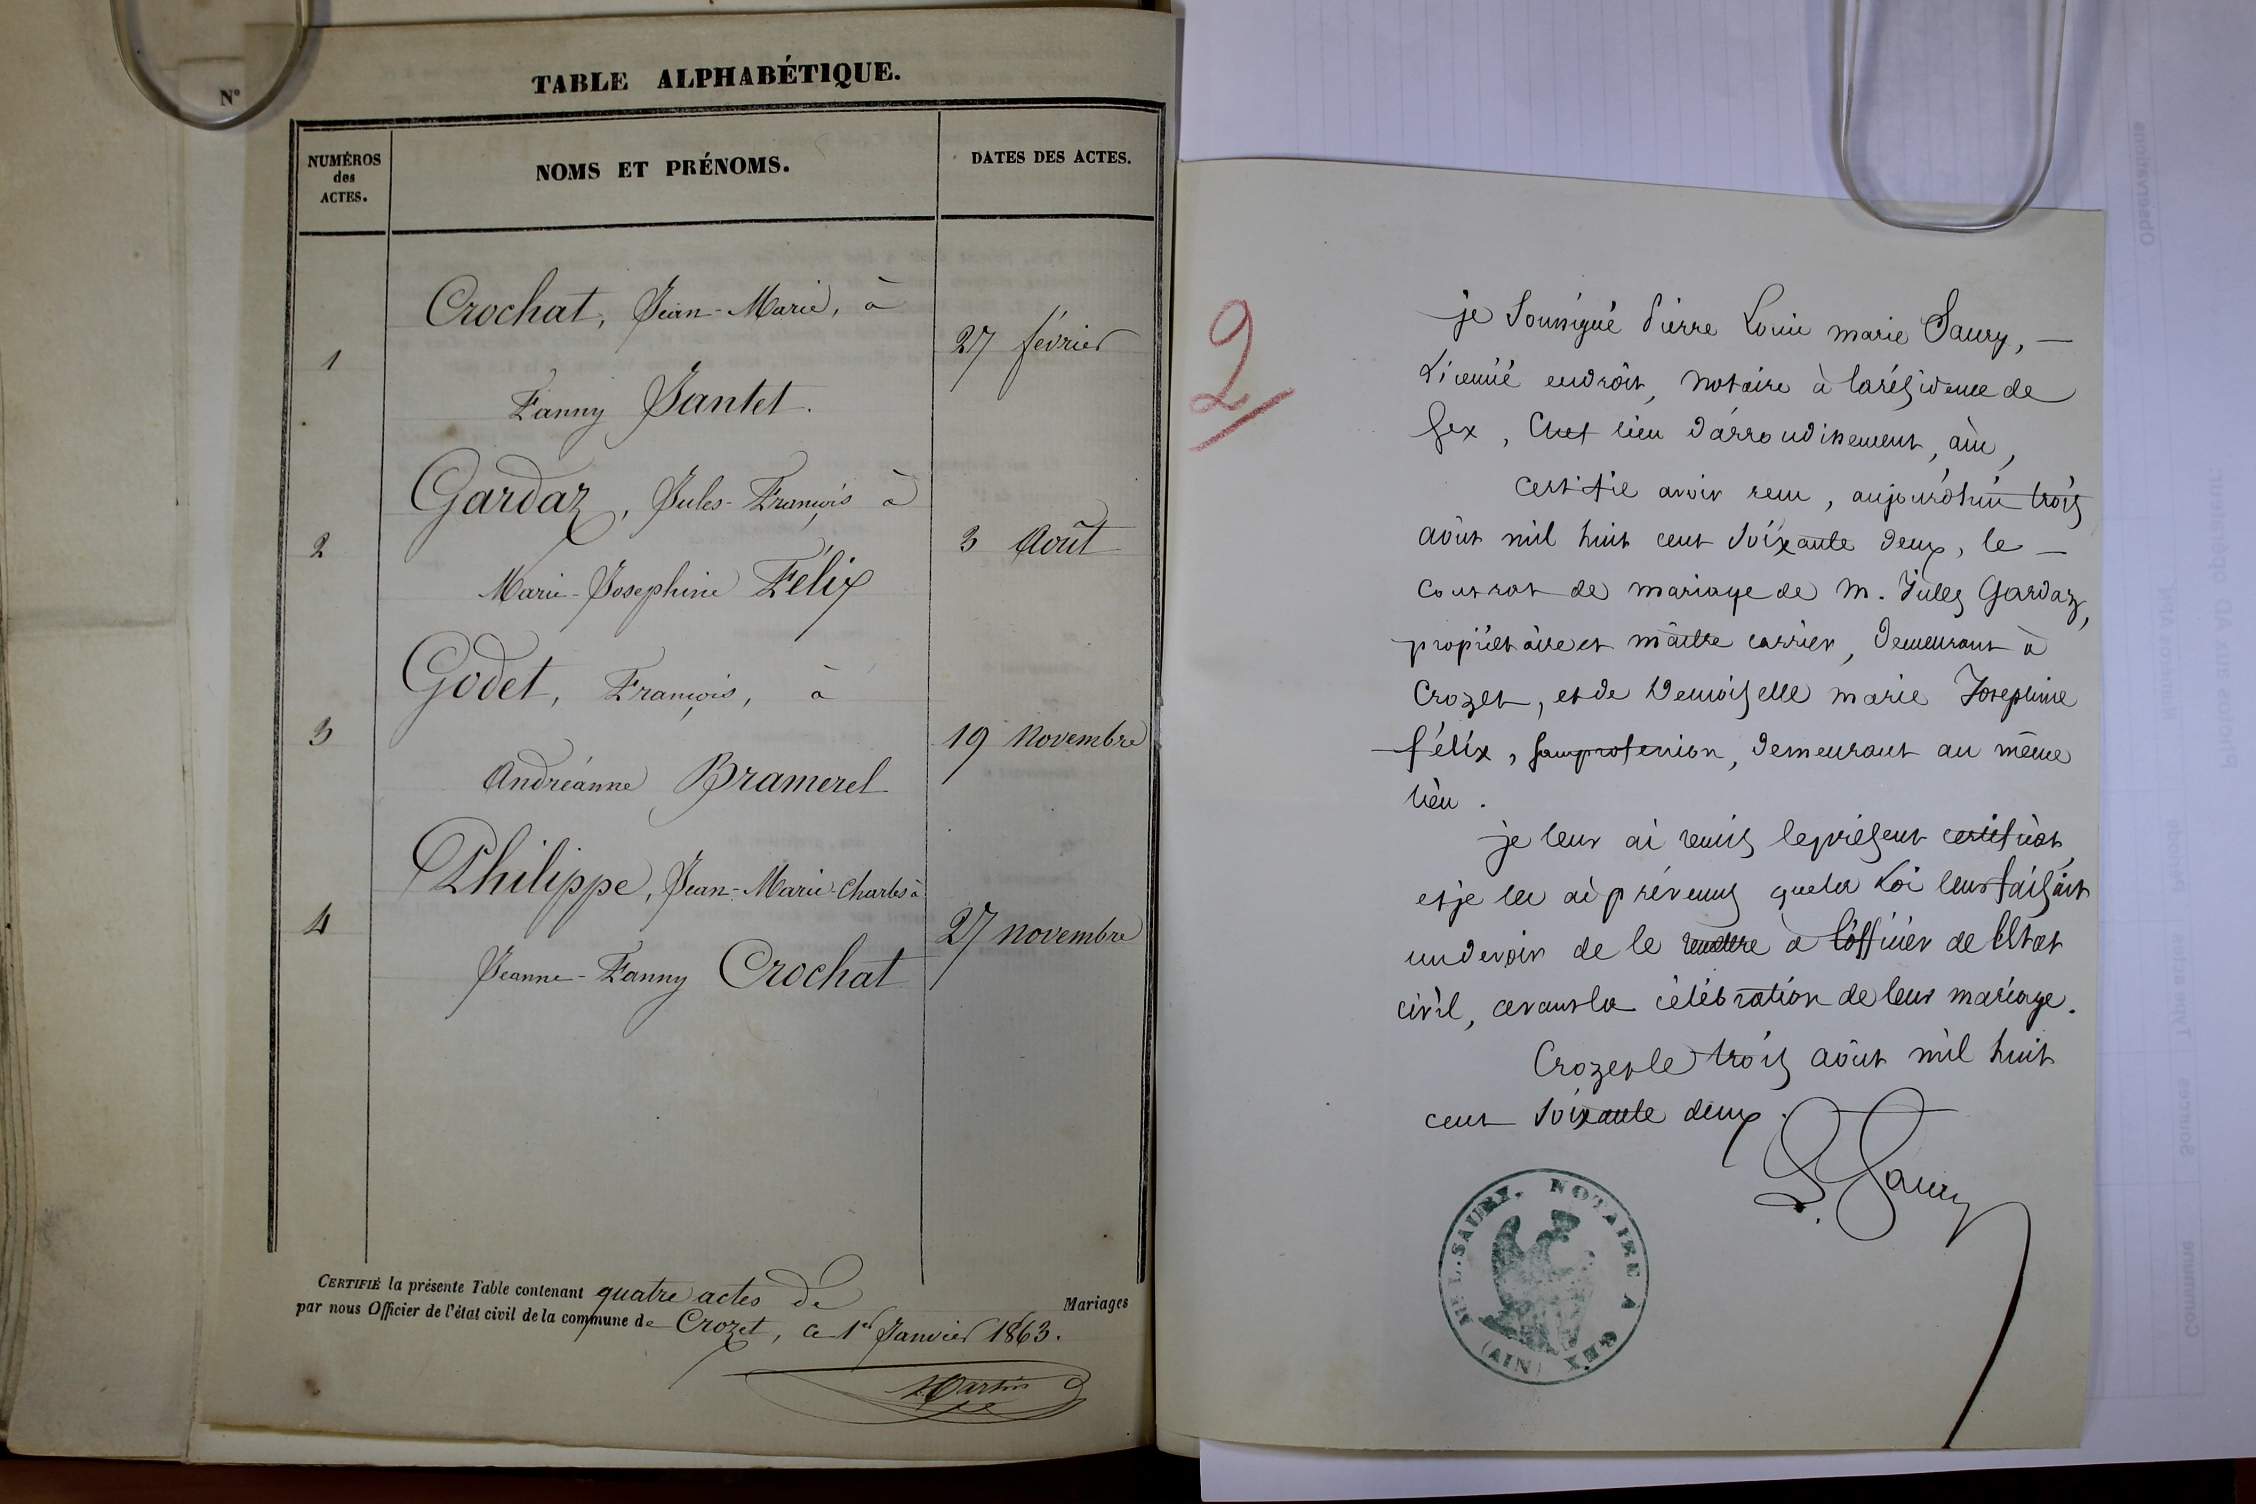 N°
TABLE ALPHABÉTIQUE.
NUMÉROS
des
ACTES.
NOMS ET PRÉNOMS.
DATES DES ACTES.
Crochat, Jean-Marie, à
1
27 février
Fanny Jantet.
Gardaz, Jules-François à
2
3 Août
Marie-Josephine Félix
Godet, François, à
3
19 Novembre
Andréanne Bramerel
Philippe, Jean-Marie-Charles à
4
27 novembre
Jeanne-Fanny Crochat
CERTIFIÉ la présente Table contenant quatre actes de Mariages
par nous Officier de l'état civil de la commune de Crozet, ce 1er Janvier 1863.
Martin
2
je Soussigné Pierre Louis marie Saury,
Licencié en droit, Notaire à la résidence de
Gex, Chef lieu d'arrondissement, ain,
Certifie avoir reçu, aujourd'hui trois
août mil huit cent soixante deux, le
contrat de mariage de M. Jules Gardaz,
propriétaire et maître carrier, demeurant à
Crozet, et de Demoiselle marie Josephine
félix, sans profession, demeurant au même
lieu.
je leur ai remis le présent certificat
et je les ai prévenus que la Loi leur faisait
un devoir de le remettre à l'officier de l'Etat
civil, avant la célébration de leur mariage.
Crozet le trois août mil huit
cent soixante deux.
L. Saury
ME L. SAURY, NOTAIRE A GEX
(AIN)
Observations
Photos aux AD
Période
Type actes
Sources
Commune